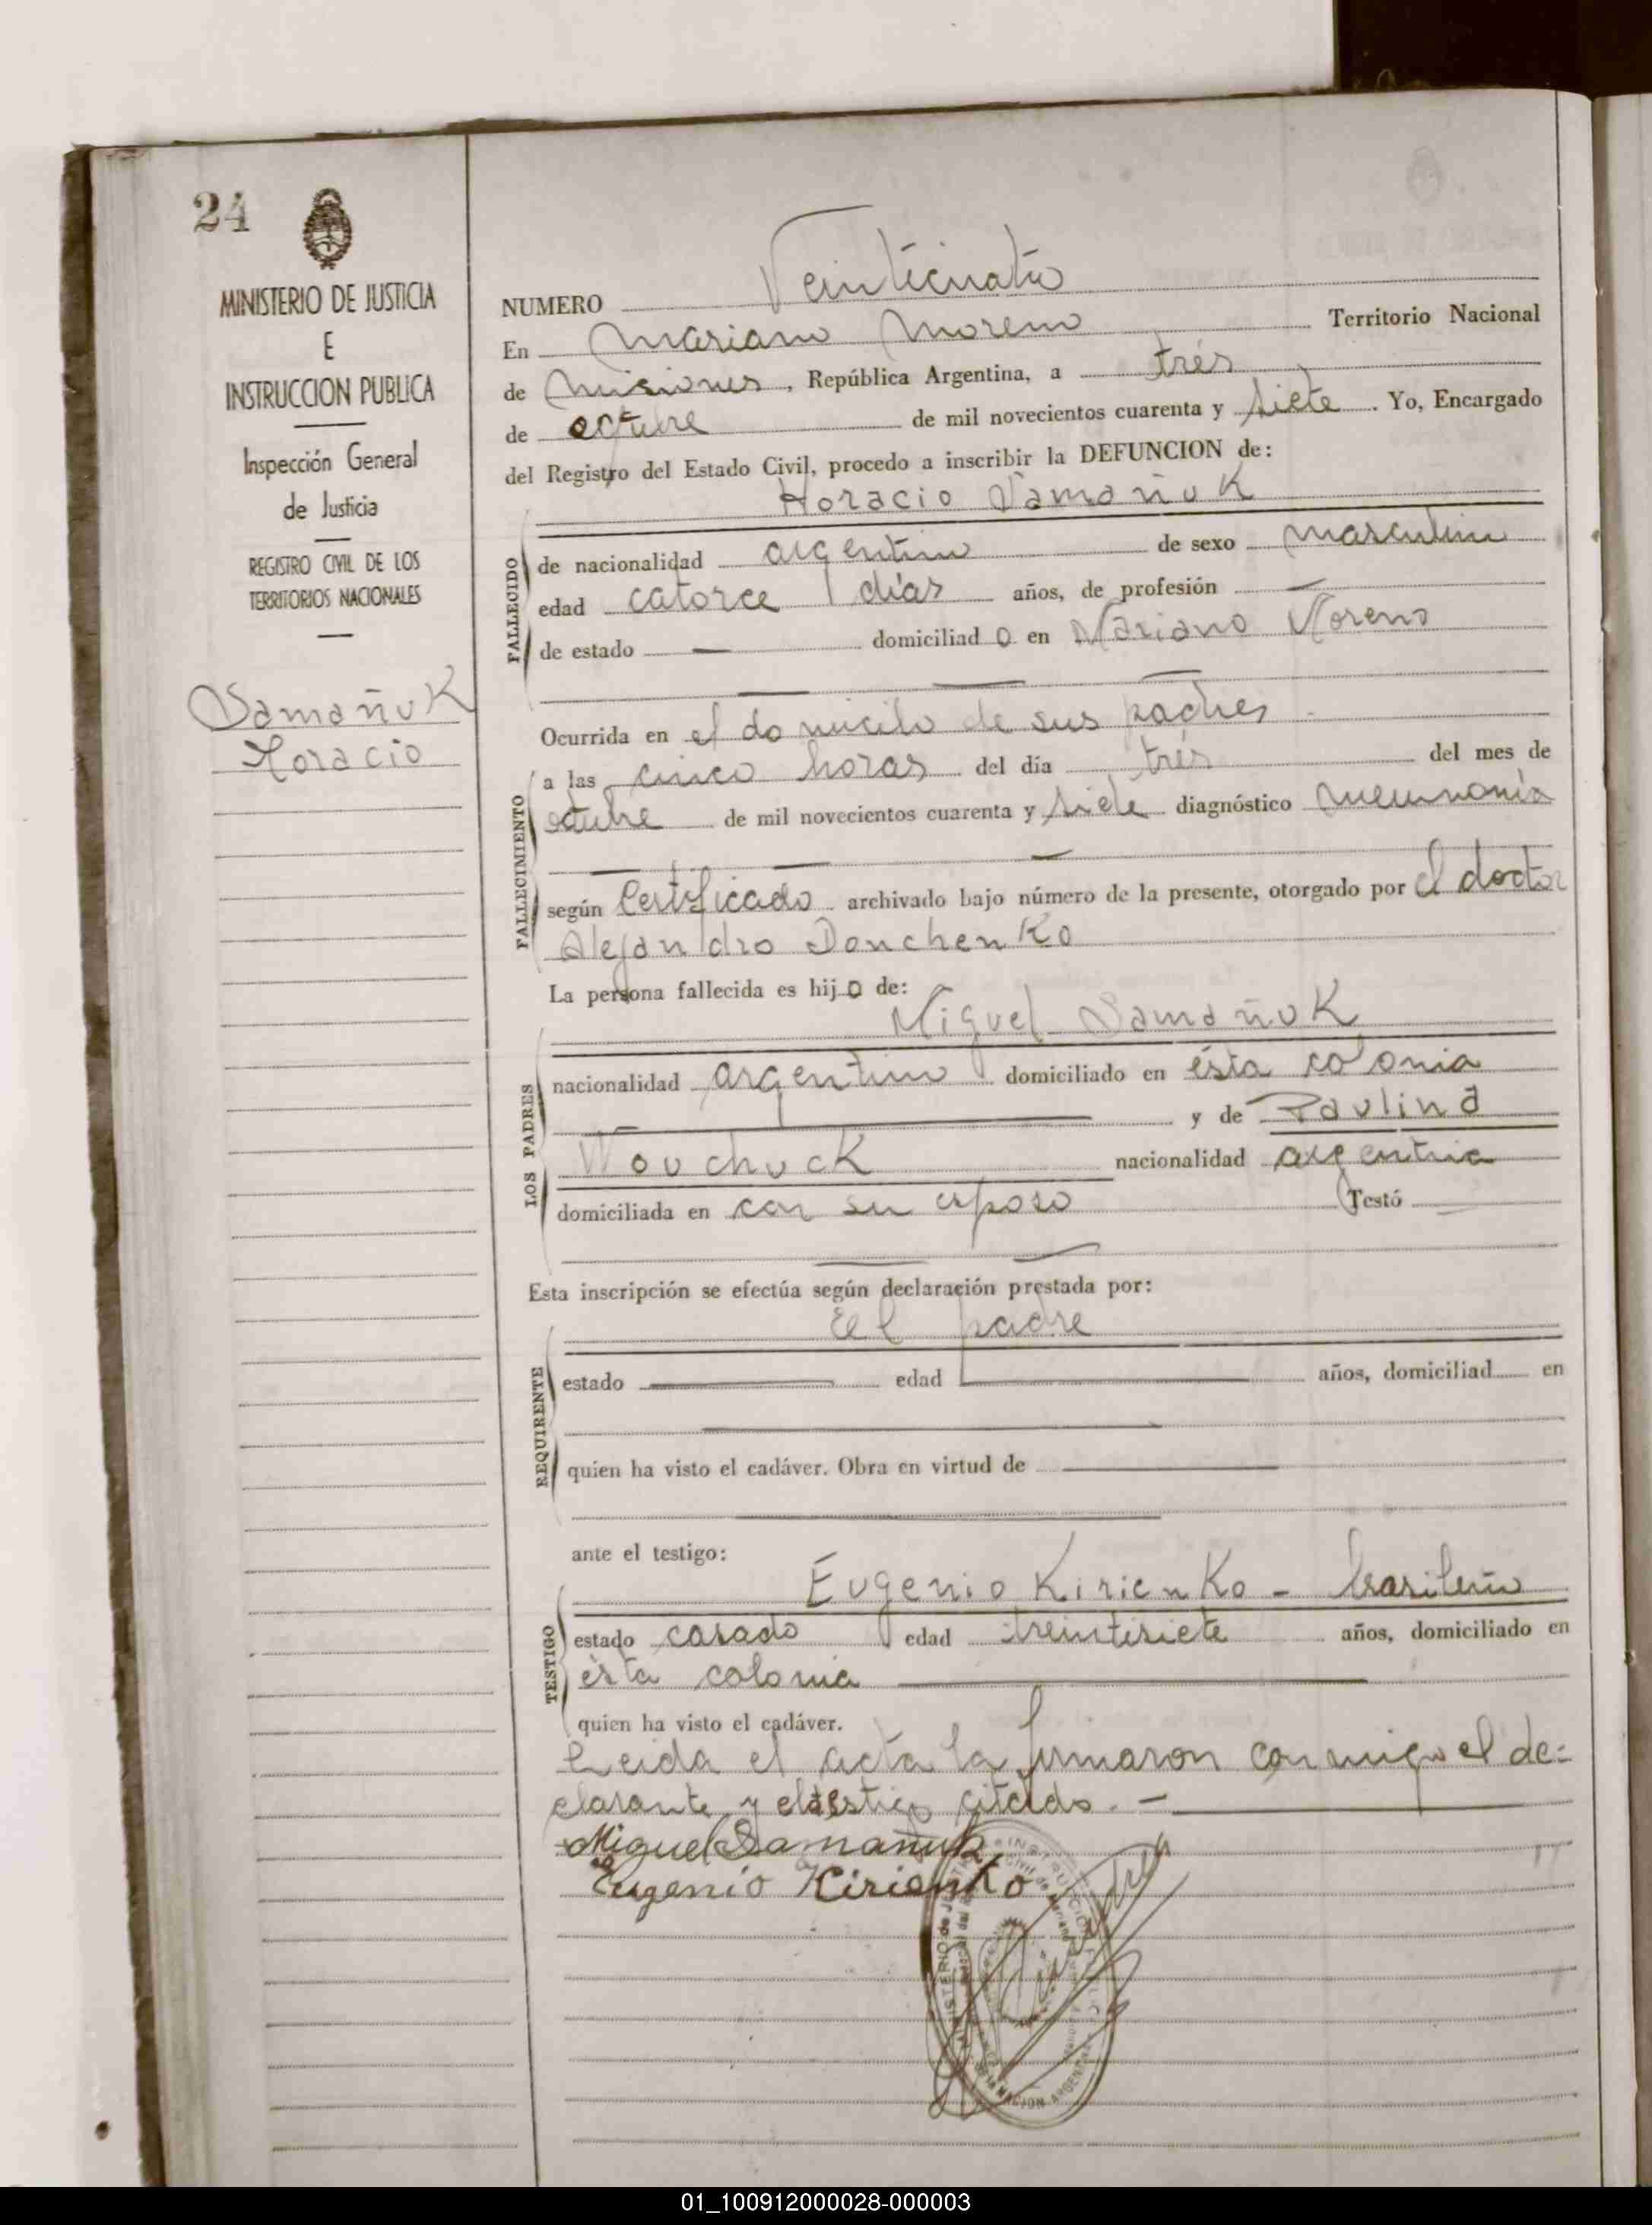 24
MINISTERIO DE JUSTICIA
E
INSTRUCCION PUBLICA
Inspección General
de Justicia
REGISTRO CIVIL DE LOS
TERRITORIOS NACIONALES
Samañuk
Horacio
NUMERO Veinticuatro
En Mariano Moreno Territorio Nacional
de Misiones, República Argentina, a trés
de octubre de mil novecientos cuarenta y siete. Yo, Encargado
del Registro del Estado Civil, procedo a inscribir la DEFUNCION de:
Horacio Samañuk
FALLECIDO
de nacionalidad argentino de sexo masculino
edad catorce días años, de profesión —
de estado — domiciliado en Mariano Moreno
Ocurrida en el domicilo de sus padres
FALLECIMIENTO
a las cinco horas del día trés del mes de
octubre de mil novecientos cuarenta y siete diagnóstico neumonía
según Certificado archivado bajo número de la presente, otorgado por el doctor
Alejandro Donchenko
La persona fallecida es hijo de:
Miguel Samañuk
LOS PADRES
nacionalidad argentino domiciliado en ésta colonia
y de Paulina
Wouchuck nacionalidad argentina
domiciliada en con su esposo Testó —
Esta inscripción se efectúa según declaración prestada por:
El padre
REQUIRENTE
estado — edad — años, domiciliad en
quien ha visto el cadáver. Obra en virtud de —
ante el testigo:
Eugenio Kirienko - brasileño
TESTIGO
estado casado edad treintisiete años, domiciliado en
ésta colonia —
quien ha visto el cadáver.
Leida el acta la firmaron conmigo el de-
clarante y el testigo citado. —
Miguel Samañuk
Eugenio Kirienko
01_100912000028-000003